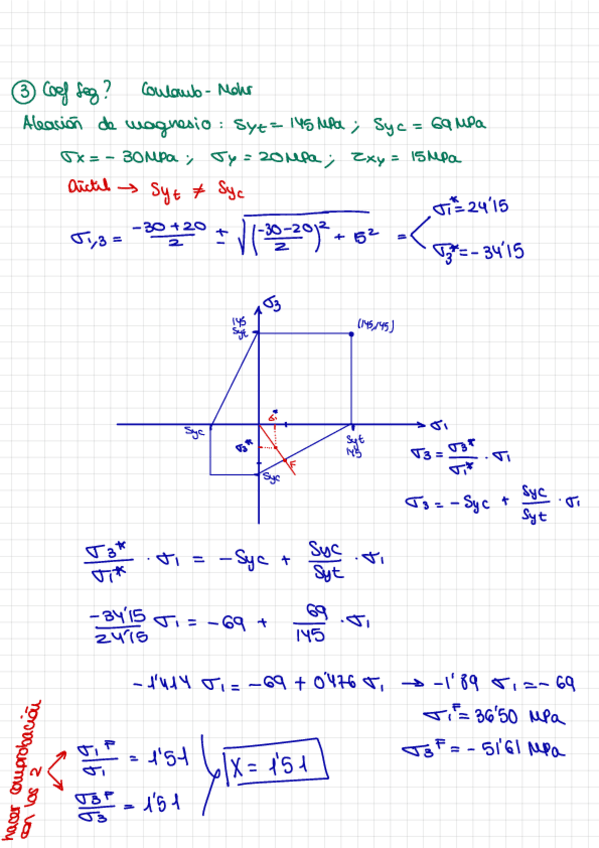 ③ Coef Seg? Coulomb-Mohr
Aleación de magnesio: Syt = 145 MPa; Syc = 69 MPa
σx = -30MPa; σy = 20MPa; τxy = 15MPa
Dúctil → Syt ≠ Syc
σ1,3 = (-30+20)/2 ± √((-30-20)/2)² + 5² = < σ1* = 24'15
σ3* = -34'15
σ3
145
Syt
(145,145)
Syc
σ1*
σ1
σ3*
Syt
145
F
Syc
σ3 = σ3*/σ1* · σ1
σ3 = -Syc + Syc/Syt · σ1
σ3*/σ1* · σ1 = -Syc + Syc/Syt · σ1
-34'15/24'15 σ1 = -69 + 69/145 · σ1
-1'414 σ1 = -69 + 0'476 σ1 → -1'89 σ1 = -69
σ1F = 36'50 MPa
σ3F = -51'61 MPa
hacer comprobación
con los 2
σ1F/σ1 = 1'51
σ3F/σ3 = 1'51
X = 1'51